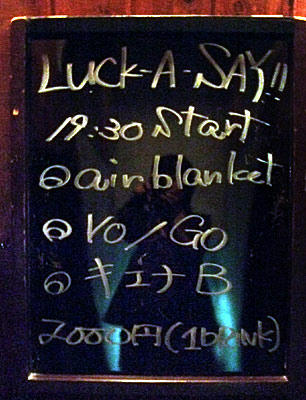 LUCK-A-SAY!!
19:30 Start
@airblanket
@ YO/GO
@ キュナB
2000円(1DRINK)